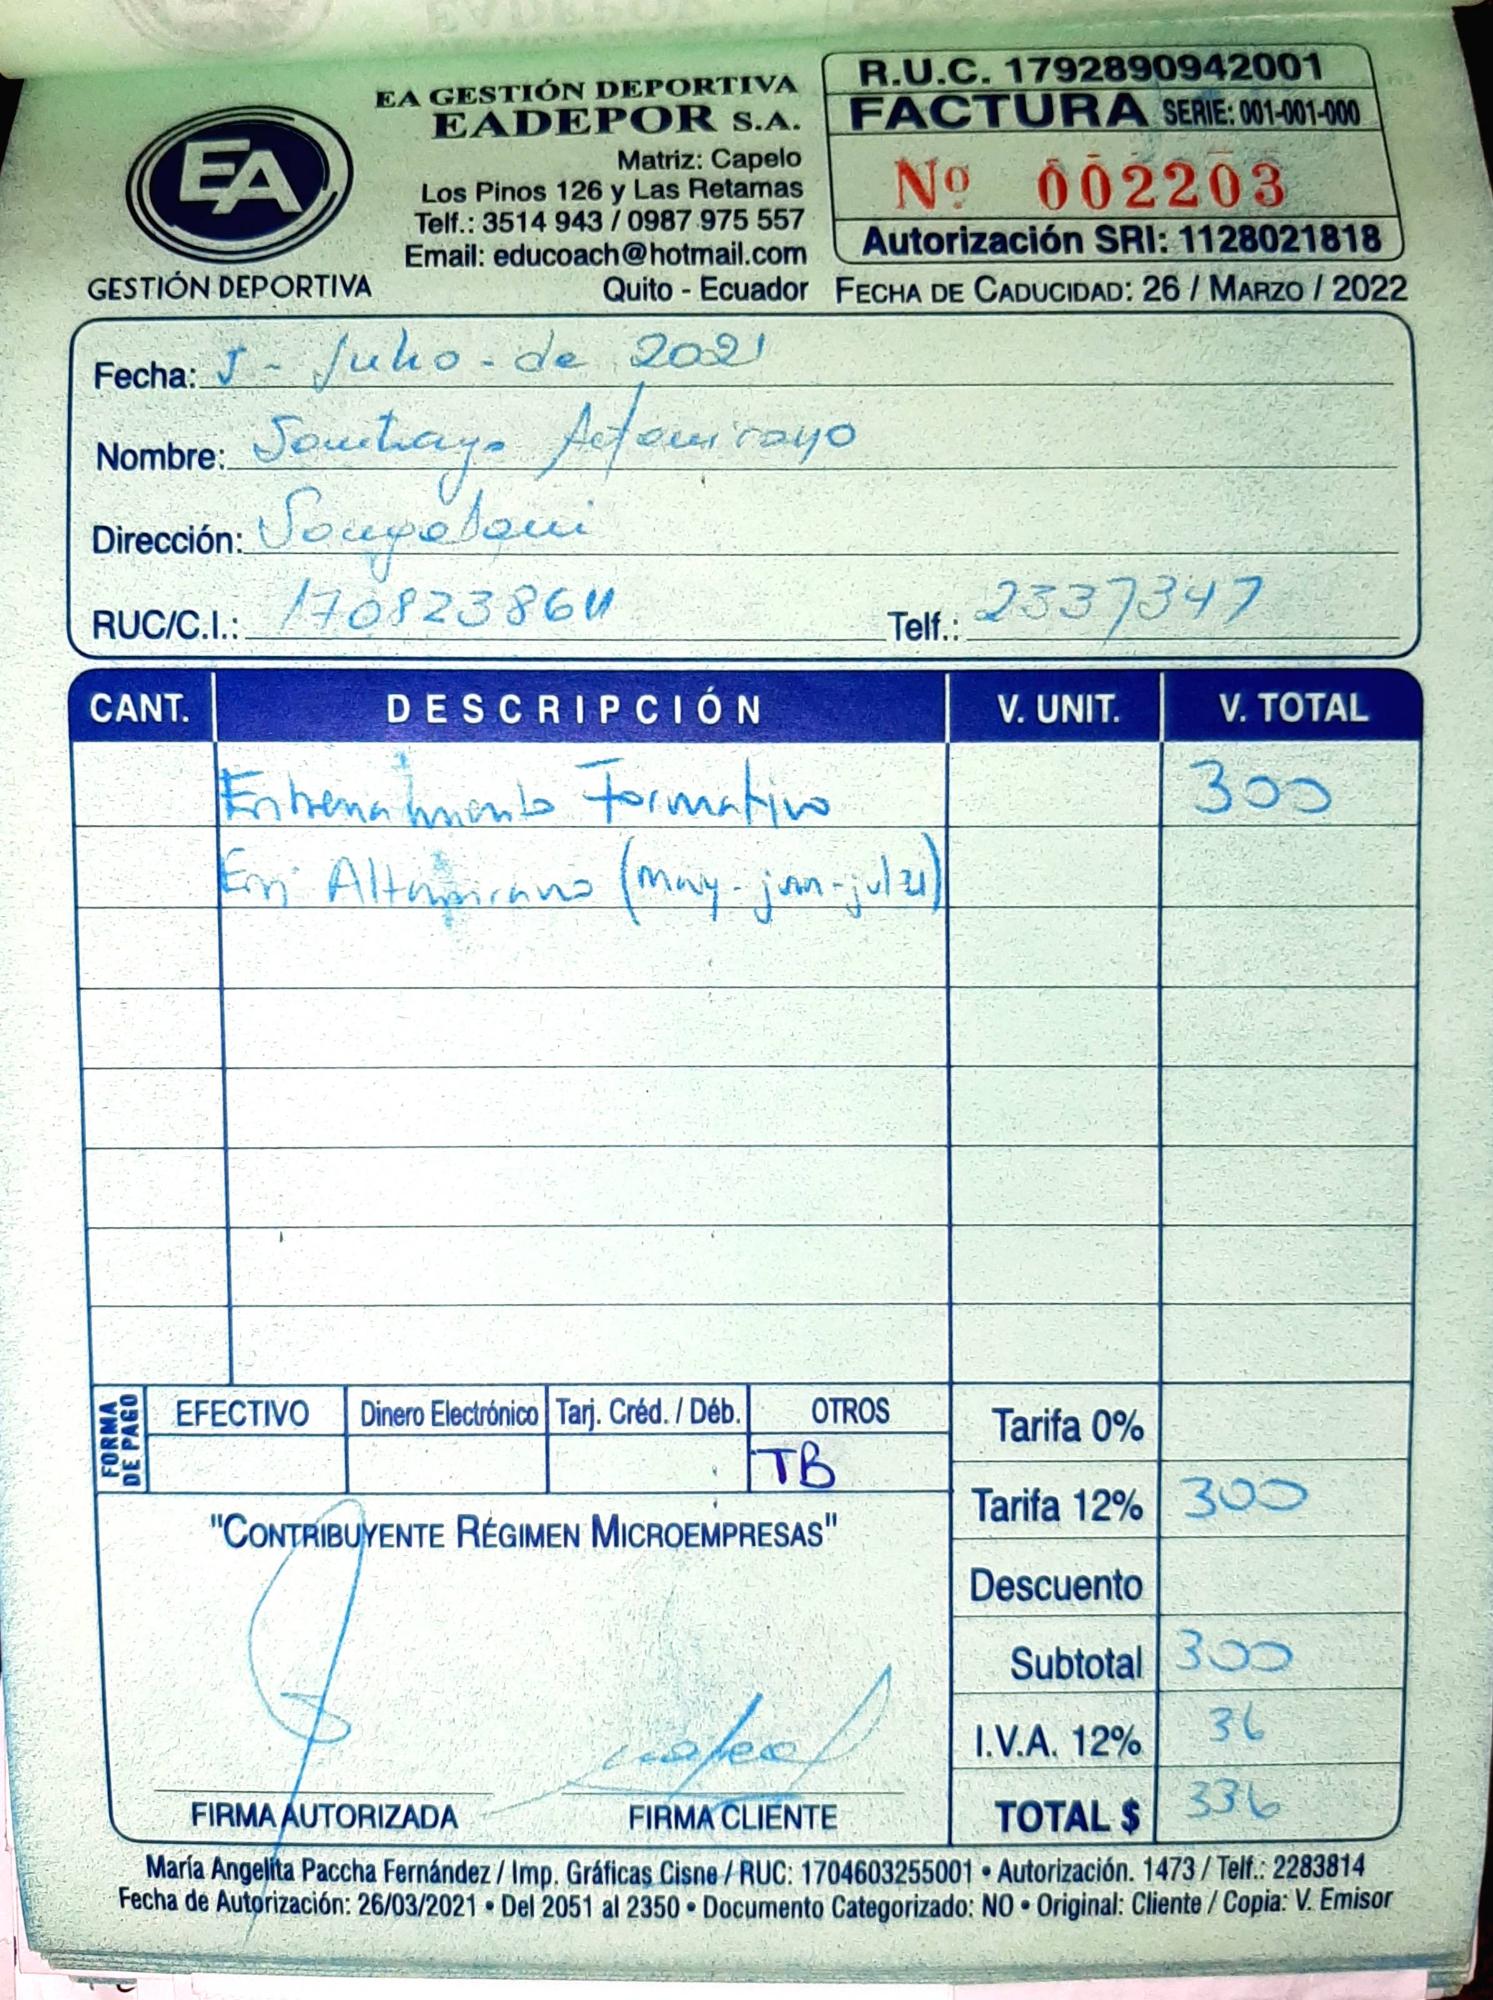 EA GESTIÓN DEPORTIVA
EADEPOR S.A.
Matriz: Capelo
Los Pinos 126 y Las Retamas
Telf.: 3514 943 / 0987 975 557
Email: educoach@hotmail.com
Quito - Ecuador
EA
GESTIÓN DEPORTIVA
R.U.C. 1792890942001
FACTURA SERIE: 001-001-000
Nº 002203
Autorización SRI: 1128021818
FECHA DE CADUCIDAD: 26 / MARZO / 2022
Fecha: 5 - Julio - de 2021
Nombre: Santiago Altamirano
Dirección: Sangolqui
RUC/C.I.: Telf.: 2337347
CANT. DESCRIPCIÓN V. UNIT. V. TOTAL
Entrenamiento Formativo 300
Altamirano (may-jun-jul21)
FORMA DE PAGO
EFECTIVO Dinero Electrónico Tarj. Créd. / Déb. OTROS
TB
Tarifa 0%
Tarifa 12% 300
Descuento
Subtotal 300
I.V.A. 12% 36
TOTAL $ 336
"CONTRIBUYENTE RÉGIMEN MICROEMPRESAS"
FIRMA AUTORIZADA FIRMA CLIENTE
María Angelita Paccha Fernández / Imp. Gráficas Cisne / RUC: 1704603255001 • Autorización. 1473 / Telf.: 2283814
Fecha de Autorización: 26/03/2021 • Del 2051 al 2350 • Documento Categorizado: NO • Original: Cliente / Copia: V. Emisor